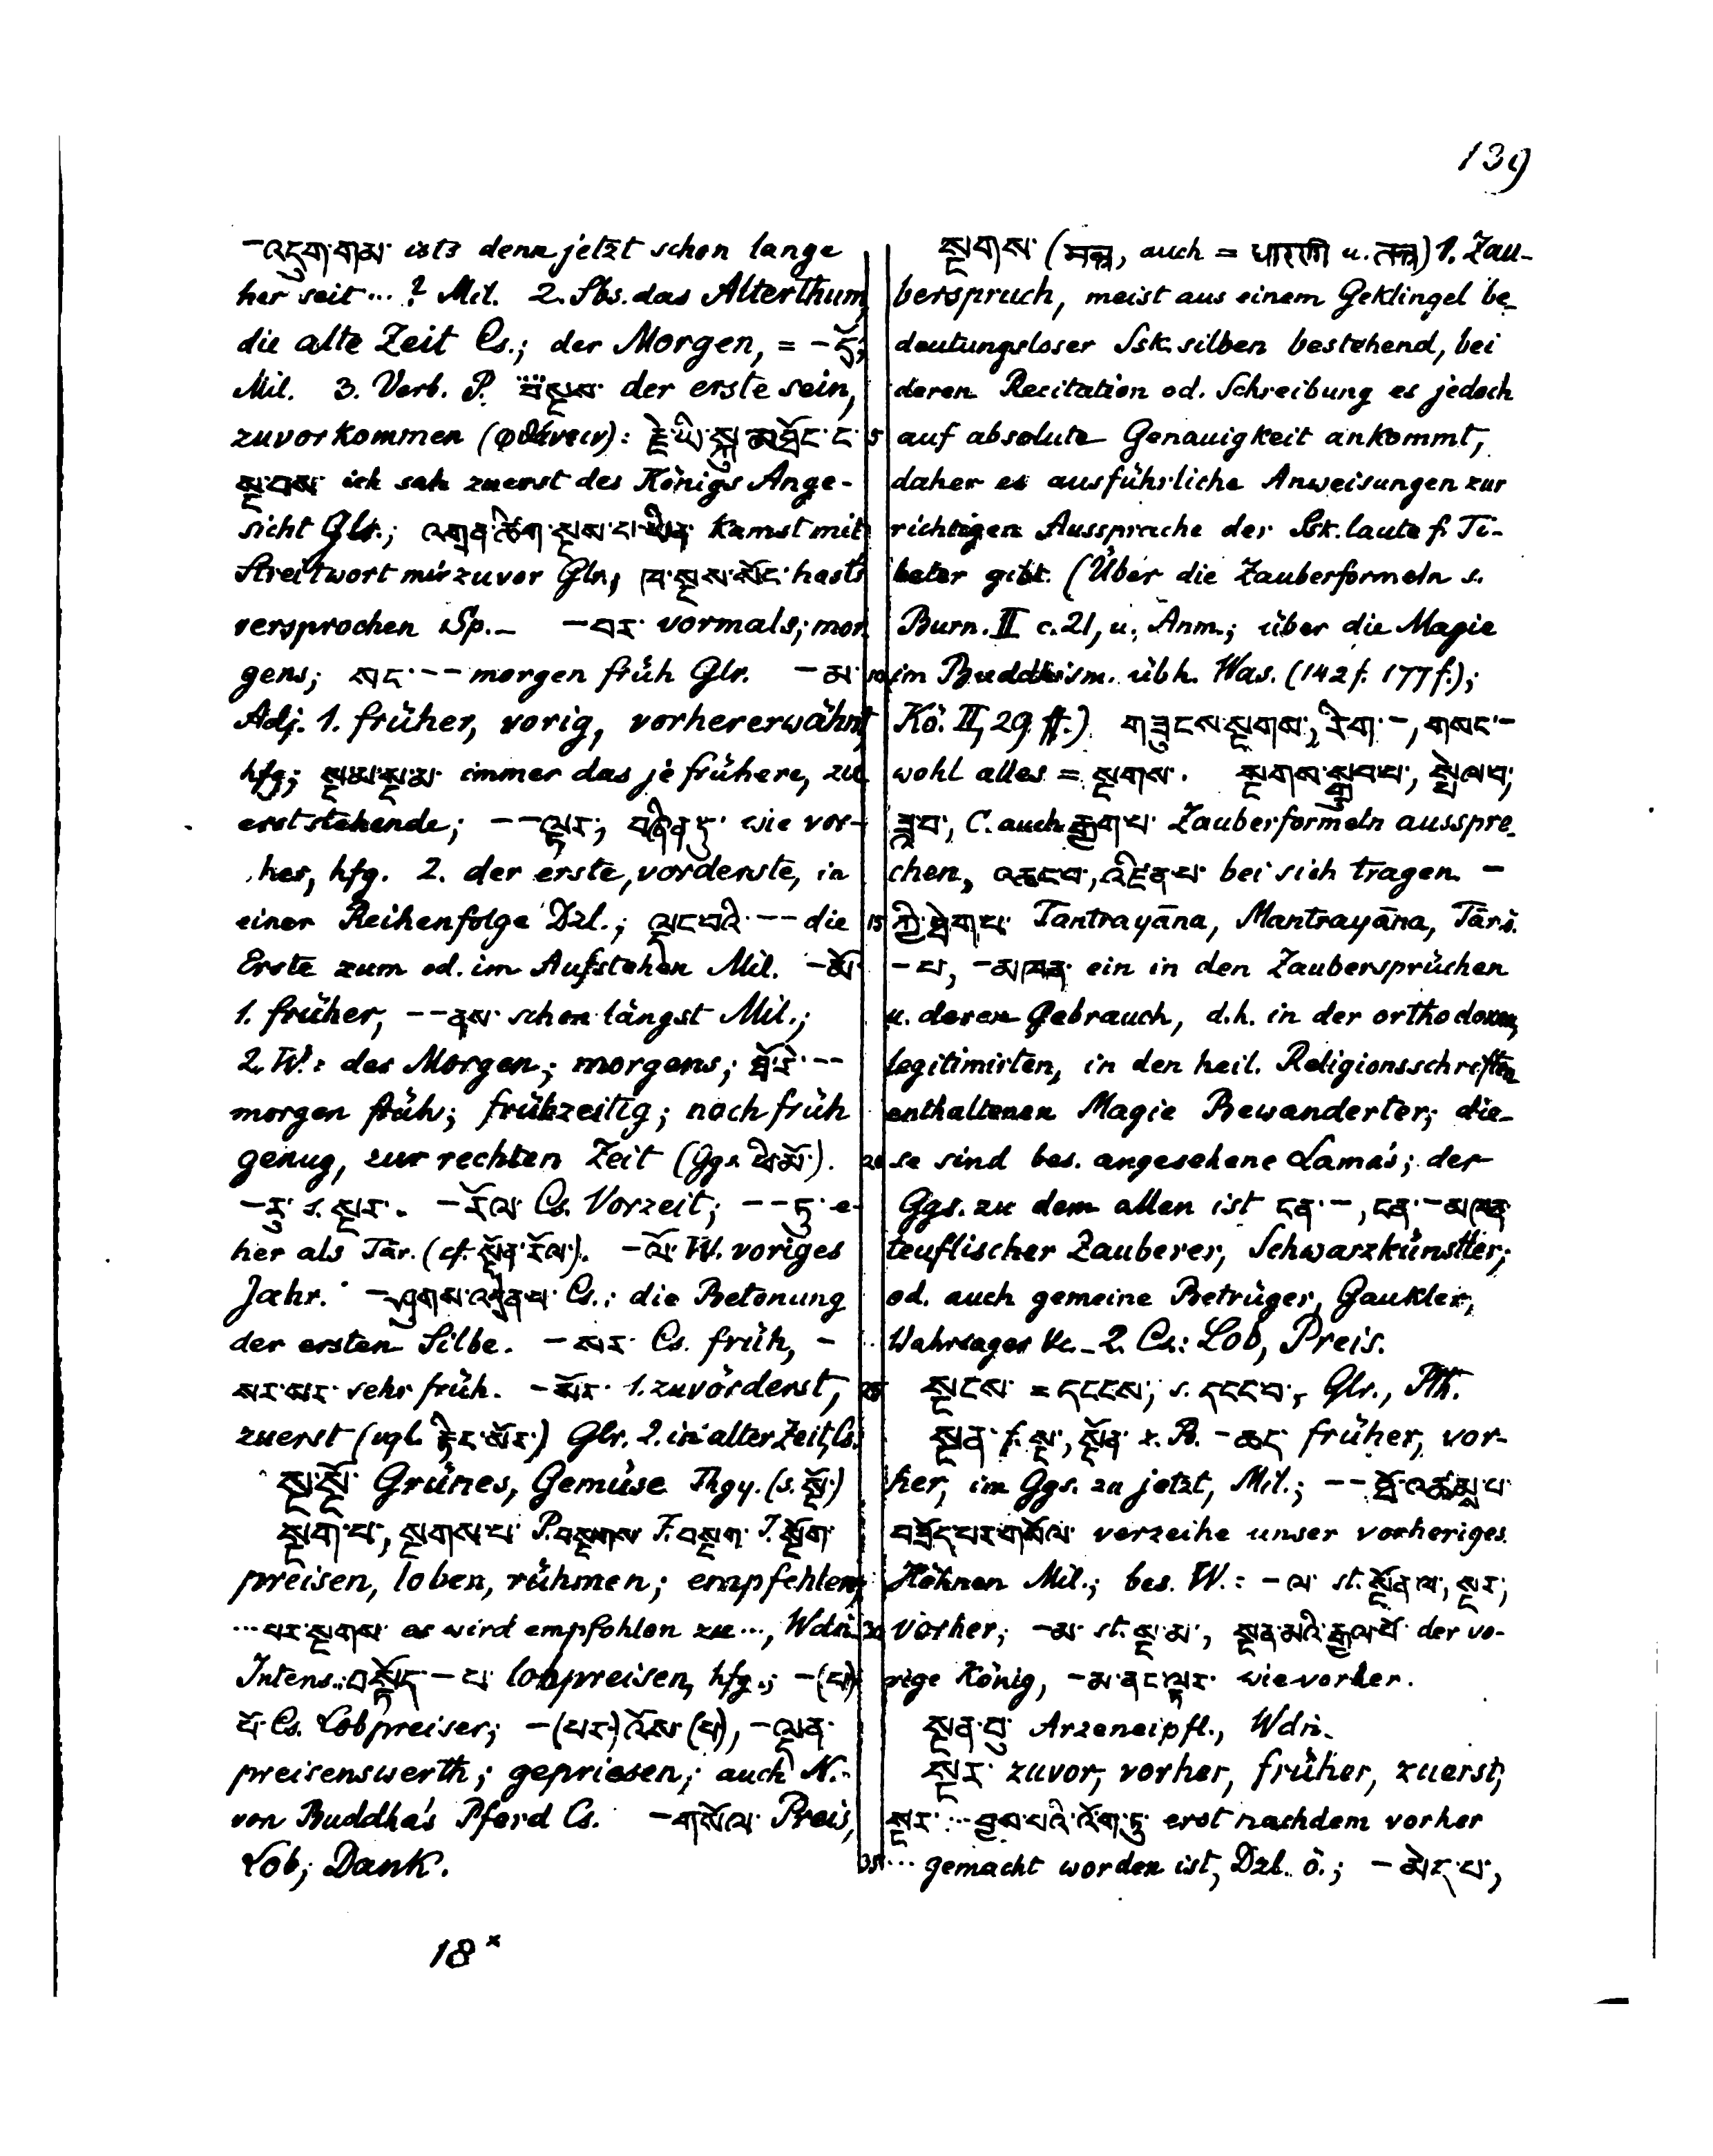 139
–འདུག་གམ་ ists denn jetzt schon lange
her seit ... ? Mil. 2. Sbs. das Alterthum,
die alte Zeit Cs.; der Morgen, = –དྲོ;
Mil. 3. Verb. P. སྔས་ der erste sein,
zuvorkommen (φθάνειν): རྗེ་ཡི་སྐུ་མཐོང་ང་
སྔ་བས་ ich sah zuerst des Königs Ange-
sicht Glr.; འགྲན་ཚིག་སྔས་པ་ཡིན་ kamst mit
Streitwort mir zuvor Glr.; ཁ་སྔས་སོང་ hasts
versprochen Sp. – –བར་ vormals; mor
gens; སང་ –– morgen früh Glr. –མ་
Adj. 1. früher, vorig, vorhererwähnt,
hfg; སྔ་མ་སྔ་མ་ immer das je frühere, zu
erststehende; ––ལྟར་, བཞིན་དུ་ wie vor-
her, hfg. 2. der erste, vorderste, in
einer Reihenfolge Dzl.; ལྡང་བའི་ –– die
Erste zum od. im Aufstehen Mil. –མོ་
1. früher, ––ནས་ schon längst Mil.;
2. W.: der Morgen; morgens; ཐོ་རེ་ ––
morgen früh; frühzeitig; noch früh
genug, zur rechten Zeit (Ggs. ཕྱི་མོ་).
–རུ་ s. སྔར་. –རོལ་ Cs. Vorzeit; ––ཏུ་ e-
her als Tār. (cf. སྔོན་རོལ་). –ལོ་ W. voriges
Jahr. –ཤུགས་འདོན་པ་ Cs.: die Betonung
der ersten Silbe. –སར་ Cs. früh, –
སར་སར་ sehr früh. –སོར་ 1. zuvörderst,
zuerst (vgl. རྟིང་སོར་) Glr. 2. in alter Zeit, Cs.
སྔ་སྔོ་ Grünes, Gemüse Thgy. (s. སྔོ་)
སྔག་པ་, སྔགས་པ་ P. བསྔགས F. བསྔག་ J. སྔོག་
preisen, loben, rühmen; empfehlen;
... པར་སྔགས་ es wird empfohlen zu ..., Wdn.
Intens.: བསྟོད་ – པ་ lobpreisen, hfg.; –(པ)
པོ་ Cs. Lobpreiser; –(པར་) འོས་(པ), –ལྡན་
preisenswerth; gepriesen; auch N.
von Buddha's Pferd Cs. –གསོལ་ Preis,
Lob; Dank.
སྔགས་ (मन्त्र, auch = धारणी u. तन्त्र) 1. Zau-
berspruch, meist aus einem Geklingel be-
deutungsloser Ssk. silben bestehend, bei
deren Recitation od. Schreibung es jedoch
5 auf absolute Genauigkeit ankommt,
daher es ausführliche Anweisungen zur
richtigen Aussprache der Ssk. laute f. Ti-
beter gibt. (Über die Zauberformeln s.
Burn. II c. 21, u. Anm.; über die Magie
10 im Buddhism. übh. Was. (142 f. 177 f.);
Kö. II, 29 ff.) གཟུངས་སྔགས་, རིག་ –, གསང་ –
wohl alles = སྔགས་. སྔགས་སྒྲུབ་པ་, སྤེལ་བ་,
ཟླ་བ་, C. auch རྒྱག་པ་ Zauberformeln ausspre-
chen, འཆང་བ་, འཛིན་པ་ bei sich tragen. –
15 ཀྱི་ཐེག་པ་ Tantrayāna, Mantrayāna, Tār.
–པ་, –མཁན་ ein in den Zaubersprüchen
u. deren Gebrauch, d.h. in der orthodoxen,
legitimirten, in den heil. Religionsschriften
enthaltenen Magie Bewanderter; die-
20 se sind bes. angesehene Lama's; der
Ggs. zu dem allen ist ངན་ –, ངན་ –མཁན་
teuflischer Zauberer, Schwarzkünstler;
od. auch gemeine Betrüger, Gaukler,
Wahrsager &c. – 2. Cs.: Lob, Preis.
25 སྔངས་ = དངངས་, s. དངང་བ་, Glr., Pth.
སྔན་ f. སྔ་, སྔོན་ z. B. –ཆད་ früher, vor-
her, im Ggs. zu jetzt, Mil.; ––ཐོ་འཚམས་པ་
བཟོད་པར་གསོལ་ verzeihe unser vorheriges
Höhnen Mil.; bes. W.: –ལ་ st. སྔོན་ལ་, སྔར་,
30 vorher; –མ་ st. སྔ་མ་, སྔན་མའི་རྒྱལ་པོ་ der vo-
rige König, –མ་ནང་ལྟར་ wie vorher.
སྔན་བུ་ Arzeneipfl., Wdn.
སྔར་ zuvor, vorher, früher, zuerst,
སྔར་ ... བྱས་པའི་འོག་ཏུ་ erst nachdem vorher
35 ... gemacht worden ist, Dzl. ö.; –མེད་པ་,
18*